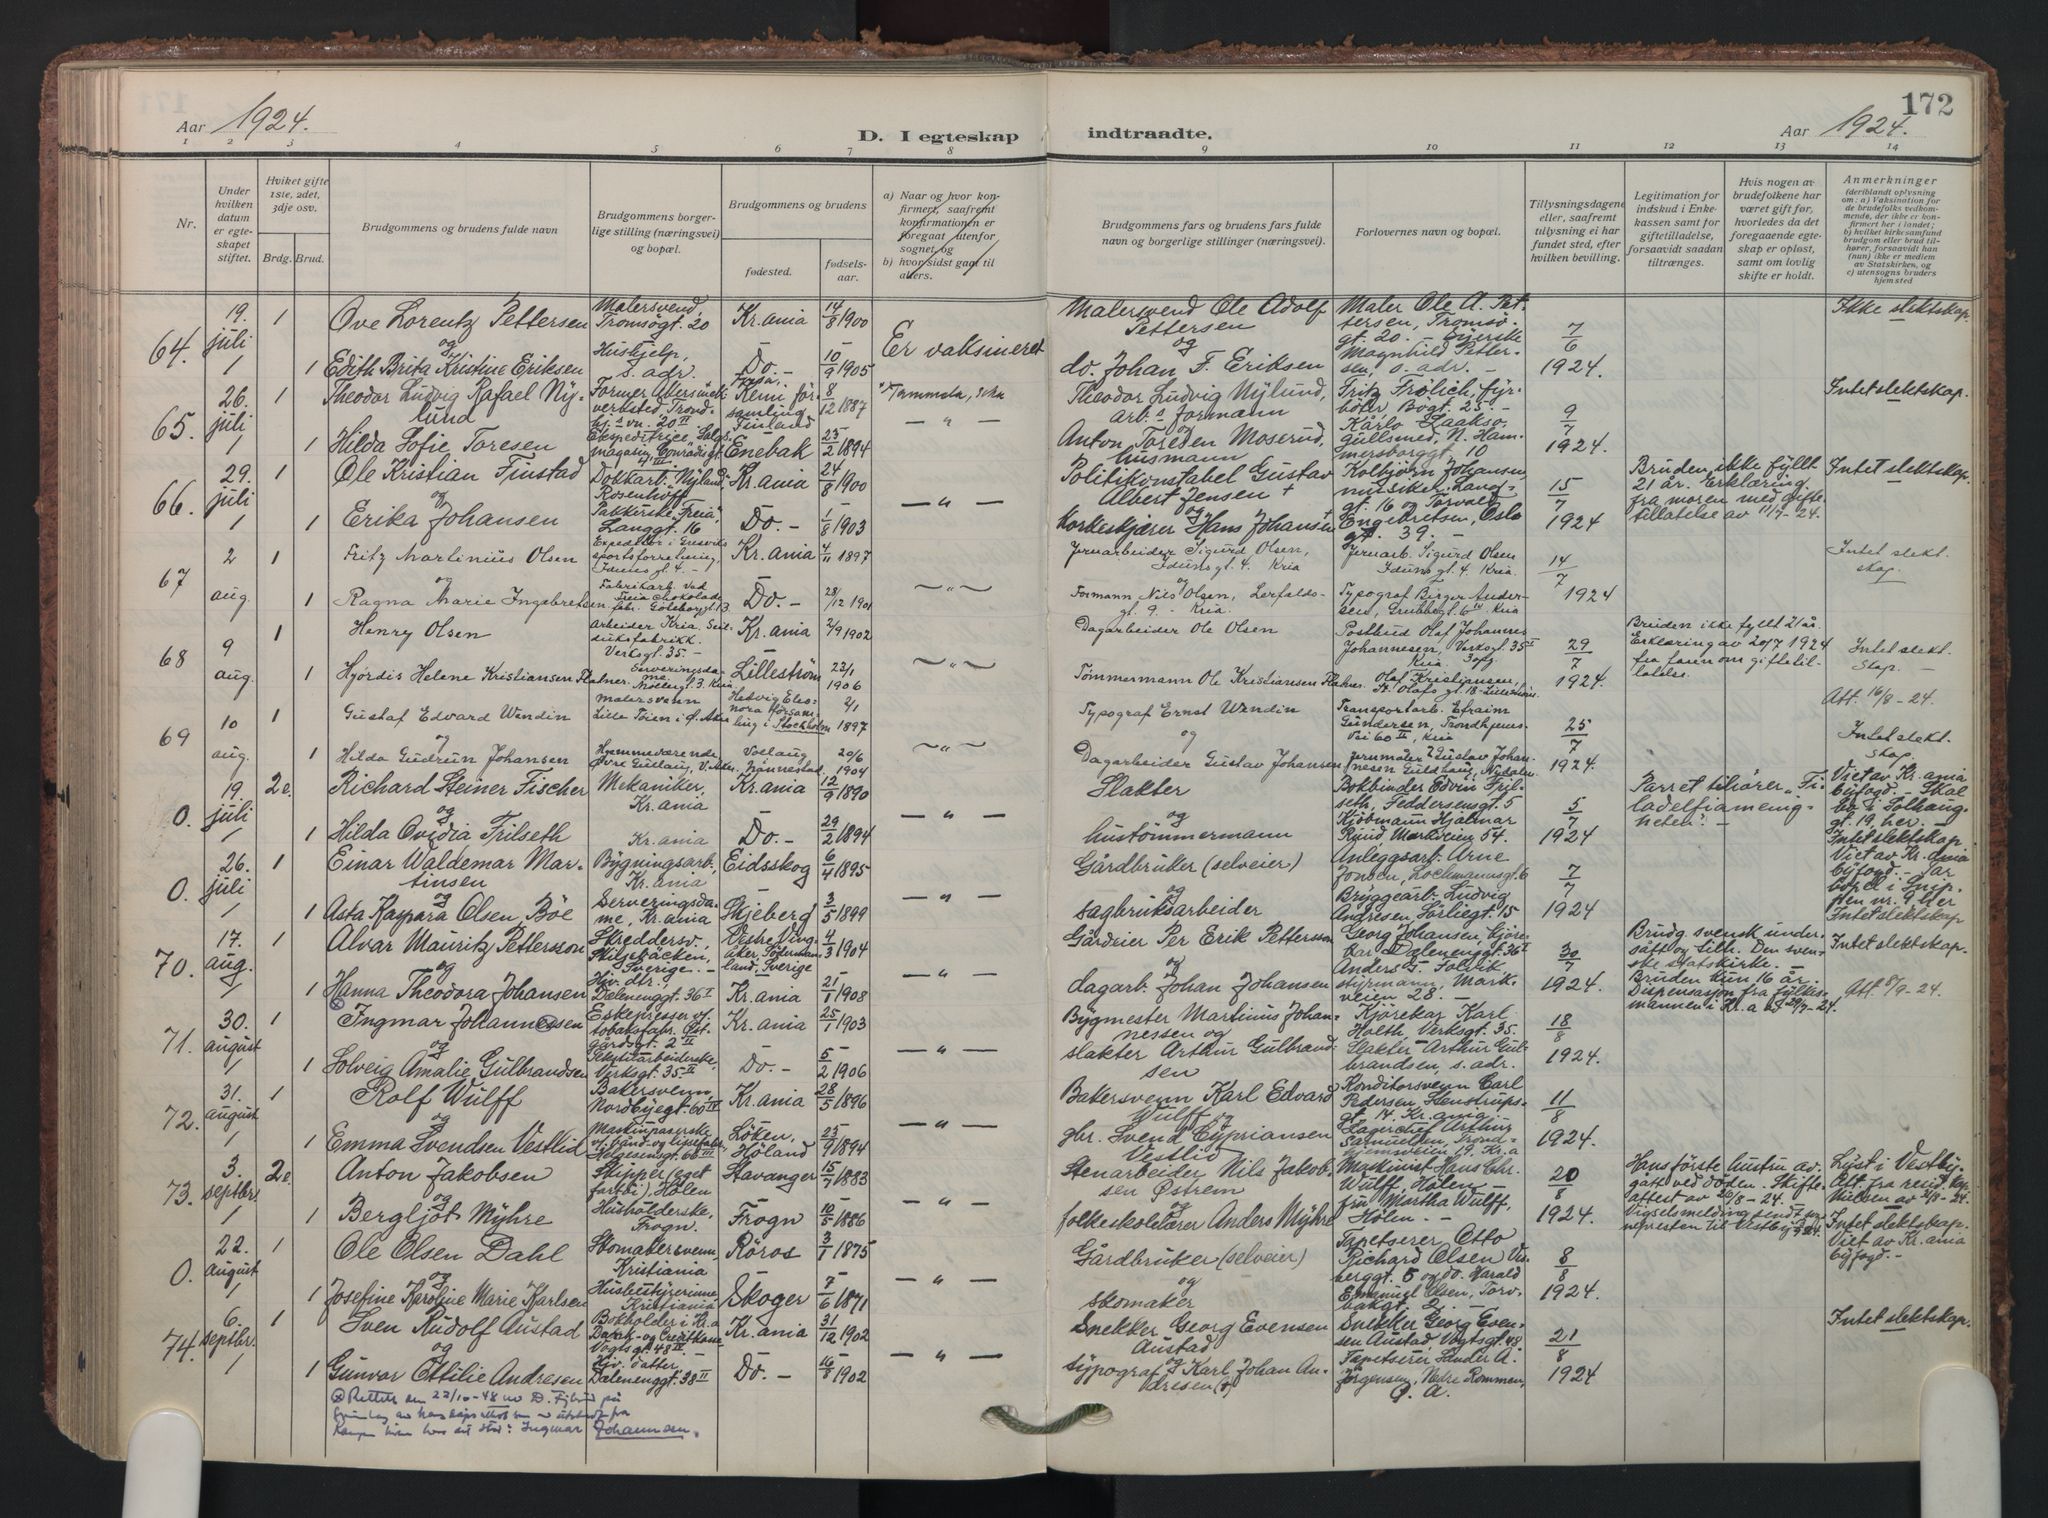 172
Aar 1924.
D. I egteskap indtraadte.
Aar 1924.
1 2 3 4 5 6 7 8 9 10 11 12 13 14
Nr.
Under hvilken datum er egteskapet stiftet.
Hvilket gifte 1ste, 2det, 3dje osv.
Brdg. Brud.
Brudgommens og brudens fulde navn
Brudgommens borgerlige stilling (næringsvei) og bopæl.
Brudgommens og brudens
fødested.
fødselsaar.
a) Naar og hvor konfirmert, saafremt konfirmationen er foregaat utenfor sognet, og
b) hvor sidst gaat til alters.
Brudgommens fars og brudens fars fulde navn og borgerlige stillinger (næringsvei).
Forlovernes navn og bopæl.
Tillysningsdagene eller, saafremt tillysning ei har fundet sted, efter hvilken bevilling.
Legitimation for indskud i Enkekassen samt for giftetilladelse, forsaavidt saadan tiltrænges.
Hvis nogen av brudefolkene har været gift før, hvorledes da det foregaaende egteskap er opløst, samt om lovlig skifte er holdt.
Anmerkninger
(deriblandt oplysning om: a) Vaksination for de brudefolks vedkommende, der ikke er konfirmert her i landet; b) hvilket kirkesamfund brudgom eller brud tilhører, forsaavidt han (hun) ikke er medlem av Statskirken, og c) utensogns bruders hjemsted
64. 19. juli 1 Ove Lorentz Pettersen Malersvend, Tromsøgt. 20 Kr.ania 14/8 1900 Er vaksineret Malersvend Ole Adolf Pettersen Maler Ole A. Pettersen, Tromsøgt. 20. 7/6 1924. Ikke slektskap.
og
1 Edith Brita Kristine Eriksen Hushjelp, s. adr. Do. - 10/9 1905 do. Johan F. Eriksen Magnhild Pettersen, s. adr. -
65. 26. juli 1 Theodor Ludvig Rafael Nylund Kemi församling Finland 8/12 1887 Theodor Ludvig Nylund, arb. formann Fritz Frølich, fyrbøter, Bogt. 25. - 9/7 1924. Intet slektskap.
1 Hilda Sofie Toresen Enebak 23/2 1894 Anton Toresen Moserud, husmann Karlo Laakso, gullsmed, N. Hammersborggt. 10
66. 29. juli 1 Ole Kristian Finstad Dokkarb. Nyland, Rosenhoff Kr.ania 24/8 1900 Politikonstabel Gustav Albert Jensen + Kolbjørn Johansen, musiker, Langgt. 16 15/7 1924 Bruden ikke fyllt 21 år. Erklæring fra moren med giftetillatelse av 11/7-24. Intet slektskap.
og
1 Erika Johansen Pakkerske Freia, Langgt. 16 Do. - 1/8 1903 Korkeskjærer Hans Johansen + og Torvald Engebretsen, Oslo gt. 39. -
67 2 aug. 1 Fritz Martinius Olsen Kr.ania 4/11 1897 Jernarbeider Sigurd Olsen, Idunsgt. 4. Kria Jernarb. Sigurd Olsen Idunsgt. 4. Kria. 14/7 1924 Intet slektskap.
og
1 Ragna Marie Ingebretsen Fabrikarb. ved Freia chokoladefabr. Göteborggt. 13 Do. - 28/12 1901 Formann Nils Olsen, Typograf Birger Andersen,
68 9 aug. 1 Henry Olsen Arbeider Kria Seildukfabrikk. Verksgt. 35. - Kr.ania 2/9 1902 Dagarbeider Ole Olsen Postbud Olaf Johannes Johannesen, Verksgt. 35 Kria. 29/7 1924. Bruden ikke fyllt 21 år. Erklæring av 20/7 1924 fra faren om giftetillatelse. Intet slektskap.
1 Hjørdis Helene Kristiansen Flatner. Serveringsdame, Møllergt. 3. Kria Lillestrøm 23/1 1906 Tømmermann Ole Kristiansen Flatner. Olaf Kristiansen, St. Olafs gt. 18 - Lillestrøm Att. 16/8-24.
69 10 aug. 1 Gustaf Edvard Wendin Malersvenn Lille Tøien i Ø. Aker Hedvig Eleonora församling i Stockholm 2/1 1897 Typograf Ernst Wendin Transportarb. Efraim Gundersen, Trondhjemsvei 60, Kria 25/7 1924. Intet slektskap.
og
1 Hilda Gudrun Johansen Hjemmeværende, 20/6 1904 Dagarbeider Gustav Johansen Jernmaler Gustav Johannesen
0. 19 juli 2e. Richard Steiner Fischer Mekaniker, Kr.ania Kr.ania 12/9 1890 Slakter Bokbinder Edvin Trilseth, Feddersensgt. 5 5/7 1924 Parret tilhører "Filadelfiamenigheten". - Viet av Kr.ania byfogd. - Skal bo i Solhauggt. 19, her. - Intet slektskap
og
1 Hilda Ovidia Trilseth Kr.ania Do. - 29/2 1894 hustømmermann Kjøbmann Hjalmar Ruud Markveien 54.
0. 26. juli 1 Einar Waldemar Martinsen Bygningsarb, Kr.ania Eidsskog 6/4 1895 Gårdbruker (selveier) Anleggsarb. Arne Jonsen, Lochmannsgt. 6 7/7 1924 Viet av Kr.ania byfogd. - Intet slektskap
og
1 Asta Kaspara Olsen Bøe Serveringsdame, Kr.ania Skjeberg 3/5 1899 sagbruksarbeider Bryggearb. Ludvig Andresen, Sørliegt. 15
70. 17. aug. 1 Alvar Mauritz Pettersson Skreddersv., Sverige. - Vestre Vingåker, Södermanland, Sverige 4/3 1904 Gårdeier Per Erik Pettersson Georg Johansen, kjørekar Dælenenggt. 36 30/7 1924. Brudg. svensk undersått og tilh. Den svenske statskirke. - Intet slektskap.
og
1 Hanna Theodora Johansen Hjv. dtr., Dælenenggt. 36 Kr.ania 21/1 1908 dagarb. Johan Johansen styrmann, Markveien 28. - Bruden kun 16 år. Dispensasjon fra fylkesmannen i Kr.a av 29/7-24. Att. 8/9-24.
71. 30. august 1 Ingmar Johannessen Kr.ania 25/1 1903 Bygmester Martinius Johannessen og Kjørekar Karl Holth Verksgt. 35. 18/8 1924. 
og
1 Solveig Amalie Gulbrandsen Verksgt. 35 Do. - 5/2 1906 slakter Arthur Gulbrandsen Slakter Arthur Gulbrandsen, s. adr.
72. 31. august 1 Rolf Wulff Bakersvenn, Nordbygt. 60 Kr.ania 28/5 1896 Bakersvenn Karl Edvard Wulff og Konditorsvenn Carl Pedersen Stenstrupsgt. 14. Kr.ania. 11/8 1924.
og
1 Emma Svendsen Vestlid Helgesensgt. 60 Løken, Høland 23/9 1894 gbr. Svend Cypriansen Vestlid Lagerchef Arthur Samuelsen, Trondhjemsveien 19. Kr.a
73. 3. septbr. 2e. Anton Jakobsen Skipper (eget fartøi), Hølen Stavanger 15/7 1883 Stenarbeider Nils Jakobsen Østrem Maskinist Hans Chr. Wulff, Hølen - 20/8 1924. Hans første hustru avgått ved døden. Skifteattest av 26/8-24. Lyst i Vestby.
og
1 Bergljot Myhre Husholderske, Frogn. Frogn 10/5 1886 folkeskolelærer Anders Myhre frk. Martha Wulff, Hølen. - Intet slektskap.
0. 22. august 1 Ole Olsen Dahl Skomakersvenn, Kristiania Røros 3/1 1875 Gårdbruker (selveier) Tapetserer Otto Richard Olsen Visberggt. 5 og do. Harald 8/8 1924. Viet av Kr.ania byfogd. -
og
1 Josefine Karoline Marie Karlsen Husbestyrerinne, Kristiania Skoger 7/6 1871 skomaker Emanuel Olsen, Torvbakgt. 2. -
74. 6. septbr. 1 Sven Rudolf Austad Bokholder i Kr.a Bank- og Creditkasse Vogtsgt. 48 Kr.ania 31/12 1902 Snekker Georg Evensen Austad Snekker Georg Evensen Austad, Vogtsgt. 48 21/8 1924 Intet slektskap.
og
1 Gunvor Ottilie Andresen Hjv. datter, Dælenenggt. 38 Do. - 16/8 1902 typograf Karl Johan Andresen (+) Tapetserer Sander A. Jørgensen, Nedre Rommen, Ø. A.
Rettet den 22/10-48
Ingmar Johannsen.